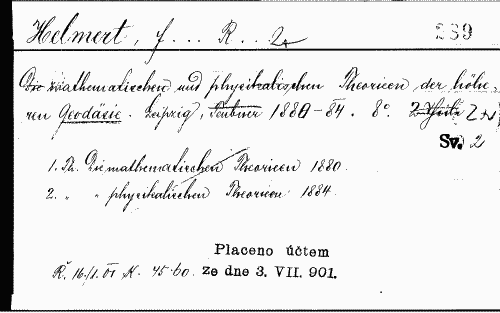 Helmert, f... R.. 2
289
Die mathematischen und physikalischen Theorieen der höhe-
ren Geodäsie. Leipzig, Teubner 1880-84. 8°. 2 Theile 2
Sv. 2
1. Th. Die mathematischen Theorieen 1880.
2. " " physikalischen Theorieen 1884.
Placeno účtem
Ř. 16/1. 01 K. 45·60. ze dne 3. VII. 901.